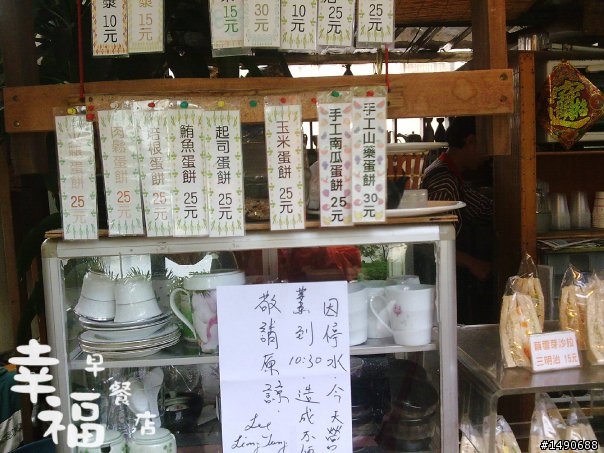 漿10元
漿15元
15元
30元
10元
25元
25元
蛋餅25元
肉鬆蛋餅25元
培根蛋餅25元
鮪魚蛋餅25元
起司蛋餅25元
玉米蛋餅25元
手工南瓜蛋餅25元
手工山藥蛋餅30元
因停水今天營
業到10:30造成不便
敬請原諒
Lee
芽沙拉
三明治 15元
幸福早餐店
#1490688